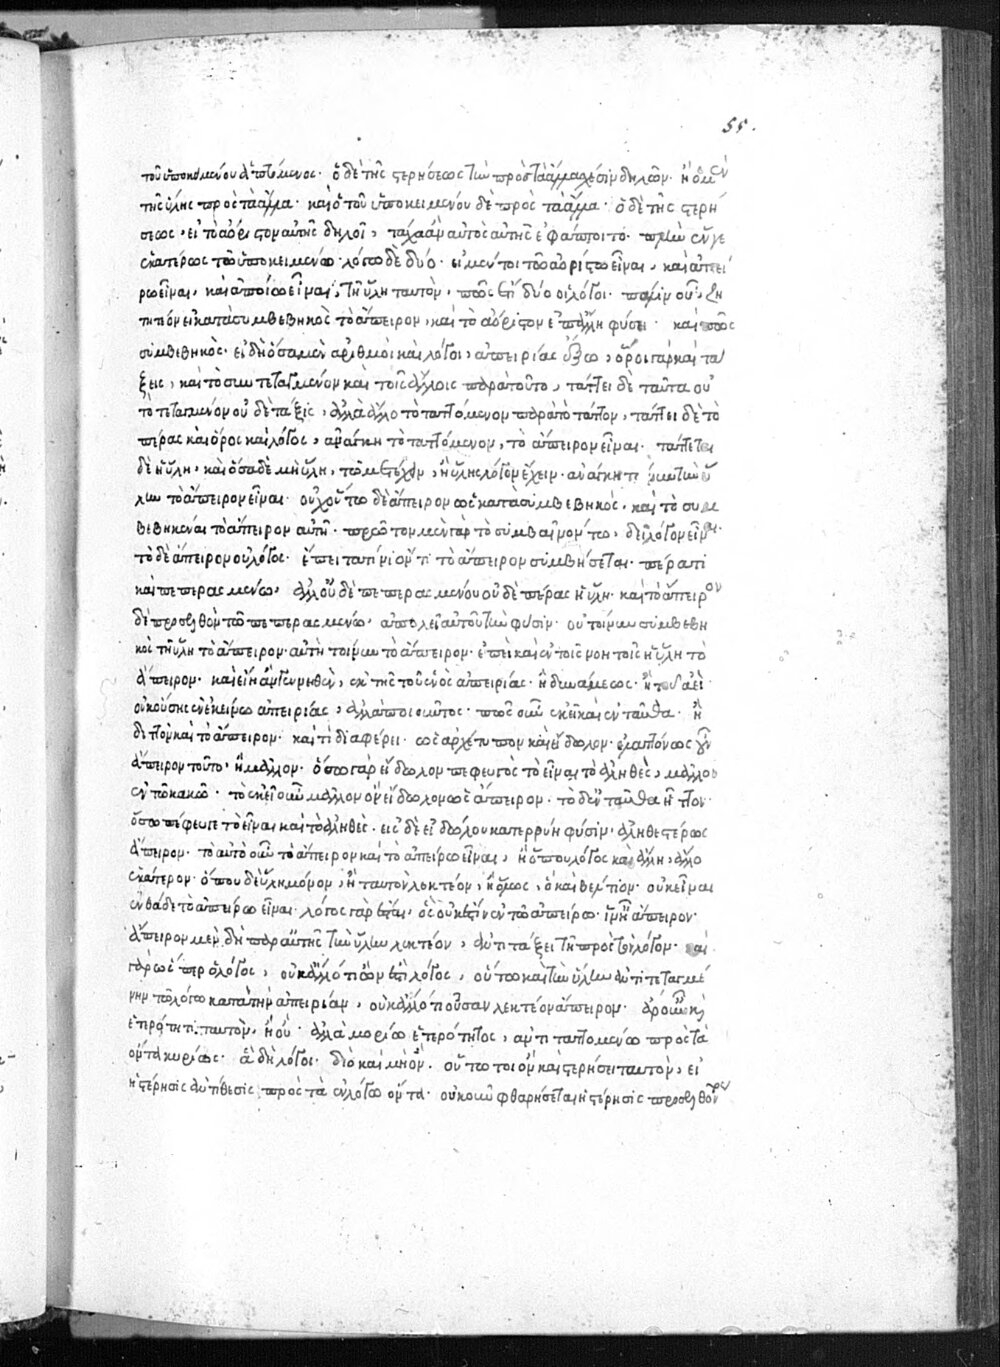 55.
τοῦ ὑποκειμένου ἁπτόμενος· ὁ δὲ τῆς στερήσεως τὴν πρὸς τὰ ἄλλα σχέσιν δηλῶν· ἢ ὁ μὲν
τῆς ὕλης πρὸς τὰ ἄλλα· καὶ ὁ τοῦ ὑποκειμένου δὲ πρὸς τὰ ἄλλα· ὁ δὲ τῆς στερή
σεως· εἰ τὸ ἀόριστον αὐτῆς δηλοῖ, τάχα ἂν αὐτὸς αὐτῆς ἐφάπτοιτο· πλὴν ἕν γε
ἑκατέρως τῷ ὑποκειμένῳ· λόγῳ δὲ δύο· εἰ μέντοι τῷ ἀορίστῳ εἶναι, καὶ ἀπεί
ρῳ εἶναι, καὶ ἀποίῳ εἶναι, τῇ ὕλῃ ταυτὸν, πῶς ἔτι δύο οἱ λόγοι· πάλιν οὖν ζη
τητέον εἰ κατὰ συμβεβηκὸς τὸ ἄπειρον, καὶ τὸ ἀόριστον ἐπ' ἄλλῃ φύσει· καὶ πῶς
συμβεβηκός· εἰ δὴ ὅσα μὲν ἀριθμοὶ καὶ λόγοι, ἀπειρίας ἔξω, ὅροι γὰρ καὶ τά
ξεις, καὶ τὸ συντεταγμένον καὶ τοῖς ἄλλοις παρὰ τούτω, τάττει δὲ ταῦτα οὐ
τὸ τεταγμένον οὐδὲ τάξις, ἀλλὰ ἄλλο τὸ ταττόμενον παρὰ τὸ τάττον, τάττει δὲ τὸ
πέρας καὶ ὅρος καὶ λόγος, ἀνάγκη τὸ ταττόμενον, τὸ ἄπειρον εἶναι· τάττεται
δὲ ἡ ὕλη, καὶ ὅσα δὲ μὴ ὕλη, τῷ μετέχειν, ἢ ὕλης λόγον ἔχειν· ἀνάγκη τοίνυν τὴν ὕ
λην τὸ ἄπειρον εἶναι· οὐχ οὕτω δὲ ἄπειρον ὡς κατὰ συμβεβηκὸς, καὶ τὸ συμ
βεβηκέναι τὸ ἄπειρον αὐτῇ· πρῶτον μὲν γὰρ τὸ συμβαῖνόν τῳ, δεῖ λόγον εἶναι·
τὸ δὲ ἄπειρον οὐ λόγος· ἔπειτα τίνι ὄντι τὸ ἄπειρον συμβήσεται· πέρατι
καὶ πεπερασμένῳ· ἀλλ' οὐδὲ πεπερασμένον οὐδὲ πέρας ἡ ὕλη· καὶ τὸ ἄπειρον
δὲ προσελθὸν τῷ πεπερασμένῳ· ἀπολεῖ αὐτοῦ τὴν φύσιν· οὐ τοίνυν συμβεβη
κὸς τῇ ὕλῃ τὸ ἄπειρον· αὐτὴ τοίνυν τὸ ἄπειρον· ἐπεὶ καὶ ἐν τοῖς νοητοῖς ἡ ὕλη τὸ
ἄπειρον· καὶ εἴη ἂν γεννηθὲν, ἐκ τῆς τοῦ ἑνὸς ἀπειρίας· ἢ δυνάμεως· ἢ τοῦ ἀεί·
οὐκ οὔσης ἐν ἐκείνῳ ἀπειρίας, ἀλλὰ ποιοῦντος· πῶς οὖν ἐκεῖ καὶ ἐνταῦθα· ἢ
διττὸν καὶ τὸ ἄπειρον· καὶ τί διαφέρει· ὡς ἀρχέτυπον καὶ εἴδωλον· ἐλαττόνως οὖν
ἄπειρον τοῦτο· ἢ μᾶλλον· ὅσῳ γὰρ εἴδωλον πεφευγὸς τὸ εἶναι τὸ ἀληθὲς, μᾶλλον
ἐν τῷ κακῷ· τὸ ἐκεῖ οὖν μᾶλλον ὂν εἴδωλον ὡς ἄπειρον· τὸ δ' ἐνταῦθα ἧττον·
ὅσῳ πέφευγε τὸ εἶναι καὶ τὸ ἀληθὲς· εἰς δὲ εἰδώλου κατερρύη φύσιν· ἀληθεστέρως
ἄπειρον· τὸ αὐτὸ οὖν τὸ ἄπειρον καὶ τὸ ἀπείρῳ εἶναι, ἢ ὅπου λόγος καὶ ὕλη, ἄλλο
ἑκάτερον· ὅπου δὲ ὕλη μόνον, ἢ ταυτὸν λεκτέον, ἢ ὅλως, ὃ καὶ βέλτιον· οὐκ εἶναι
ἐνθάδε τὸ ἀπείρῳ εἶναι· λόγος γὰρ ἔσται, ὃς οὐκ ἔστιν ἐν τῷ ἀπείρῳ· ἵν' ᾖ ἄπειρον·
ἄπειρον μὲν δὴ παρ' αὐτῆς τὴν ὕλην λεκτέον, ἀντιτάξει τῇ πρὸς τὸν λόγον· καὶ
γὰρ ὥσπερ ὁ λόγος, οὐκ ἄλλό τι ὢν ἐστὶ λόγος, οὕτω καὶ τὴν ὕλην ἀντιτεταγμέ
νην τῷ λόγῳ κατὰ τὴν ἀπειρίαν, οὐκ ἄλλό τι οὖσαν λεκτέον ἄπειρον· ἆρ' οὖν καὶ
ἑτερότητι ταυτὸν, ἢ οὔ· ἀλλὰ μορίῳ ἑτερότητος, ἀντιταττομένῳ πρὸς τὰ
ὄντα κυρίως· ἃ δὴ λόγοι· διὸ καὶ μὴ ὂν· οὕτω τι ὂν καὶ στερήσει ταυτὸν, εἰ
ἡ στέρησις ἀντίθεσις πρὸς τὰ ἐν λόγῳ ὄντα· οὐκοῦν φθαρήσεται ἡ στέρησις προσελθόντος